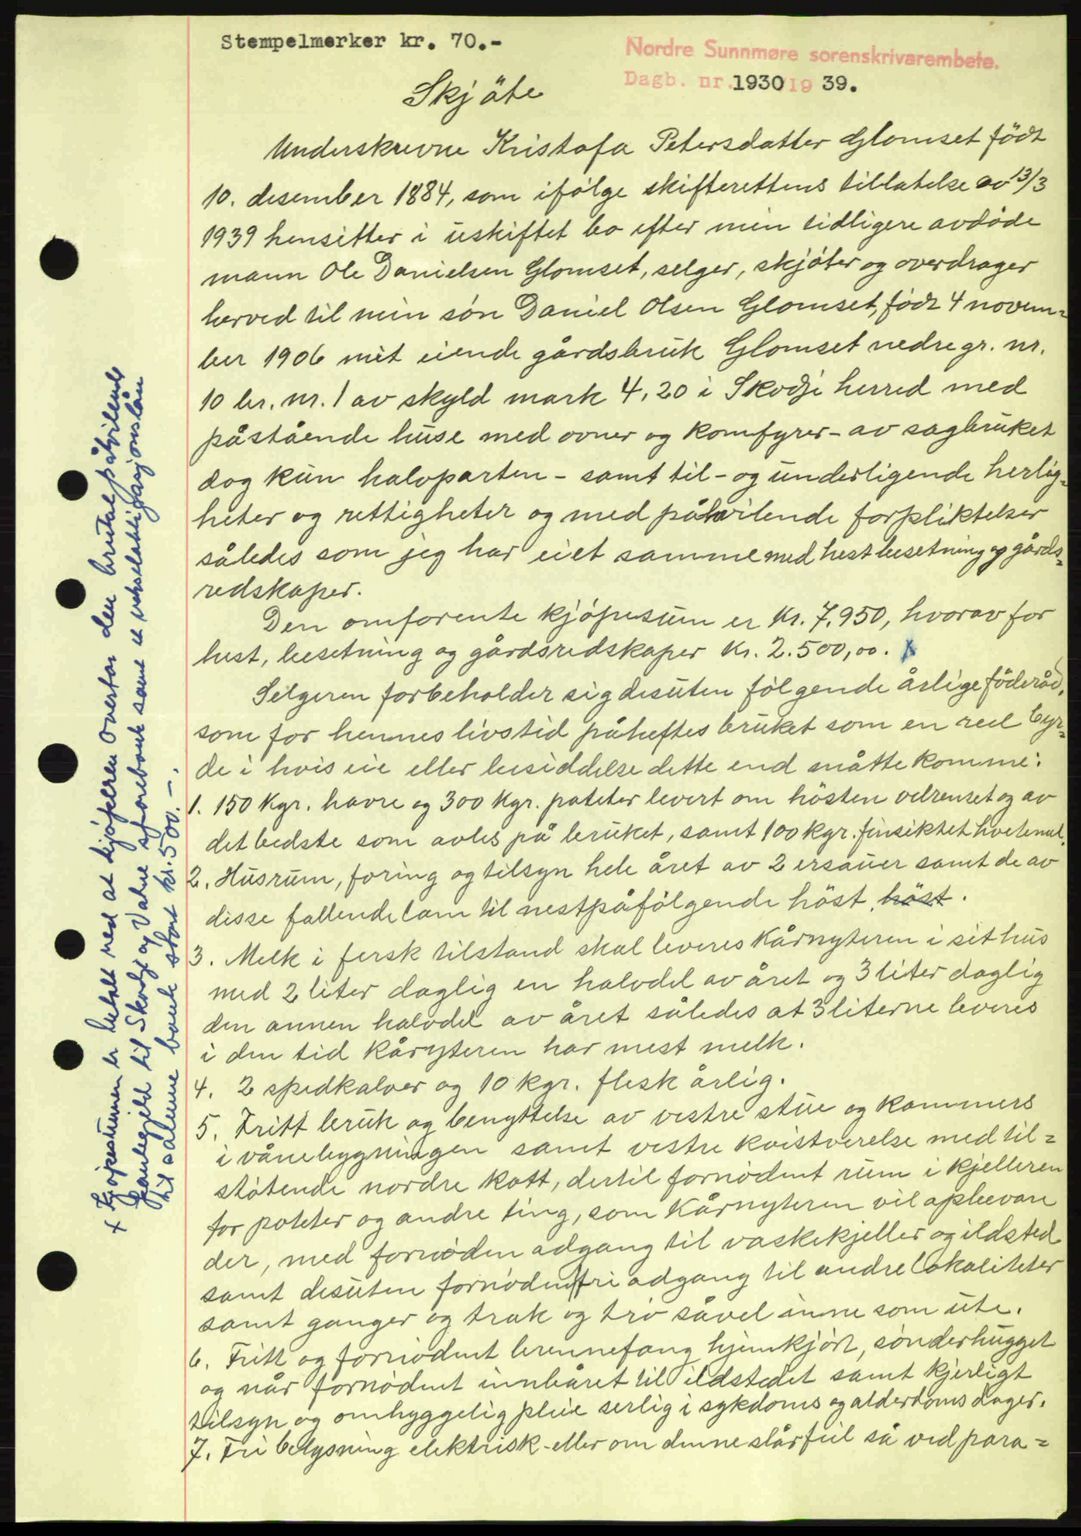 Stempelmerker kr. 70.-
Nordre Sunnmøre sorenskrivarembete.
Dagb. nr. 1930 19 39.
Skjöte
Underskrevne Kristofa Petersdatter Glomset født
10. desember 1884, som ifølge skifterettens tillatelse av 13/3
1939 hensitter i uskiftet bo efter min tidligere avdøde
mann Ole Danielsen Glomset, selger, skjøter og overdrager
herved til min søn Daniel Olsen Glomset, født 4 novem-
ber 1906 mit eiende gårdsbruk Glomset nedre gr. nr.
10 br. nr. 1 av skyld mark 4,20 i Skodje herred med
påstående huse med ovner og komfyrer - av sagbruket
dog kun halvparten - samt til- og underligende herlig-
heter og rettigheter og med påhvilende forpliktelser
således som jeg har eiet samme med hest besetning og gårds-
redskaper.
Den omforente kjøpesum er kr. 7.950, hvorav for
hest, besetning og gårdsredskaper kr. 2.500,00. x
Selgeren forbeholder sig desuten følgende årlige føderåd,
som for hennes livstid påheftes bruket som en reel byr-
de i hvis eie eller besiddelse dette end måtte komme:
1. 150 kgr. havre og 300 kgr. poteter levert om hösten velrenset og av
det bedste som avles på bruket, samt 100 kgr. finsiktet hvetemel.
2. Husrum, foring og tilsyn hele året av 2 ersauer samt de av
disse fallende lam til nestpåfölgende höst höst.
3. Melk i fersk tilstand skal leveres kårnyteren i sit hus
med 2 liter daglig en halvdel av året og 3 liter daglig
den annen halvdel av året således at 3 literne leveres
i den tid kåryteren har mest melk.
4. 2 spedkalver og 10 kgr. flesk årlig.
5. Fritt bruk og benyttelse av vestre stue og kammers
i vånebygningen samt vestre kvistverelse med til-
støtende nordre kott, dertil fornödent rum i kjelleren
for poteter og andre ting, som kårnyteren vil opbevare
der, med fornöden adgang til vaskekjeller og ildsted
samt desuten fornöden fri adgang til andre lokaliteter
samt ganger og trak og trö såvel inne som ute.
6. Fritt og fornödent brennefang hjemkjört, sönderhugget
og når fornödent innbåret til ildstedet samt kjerligt
tilsyn og omhyggelig pleie serlig i sykdoms og alderdoms dager.
7. Fri belysning elektrisk eller om denne slår feil så ved para-
x Kjøpesummen er betalt ved at kjøperen overtar den brutal påhvilende
panlegjeld til Skodje og Vatne sparebank samt et vekselobligasjonslån
til samme bank stort kr. 500.-.